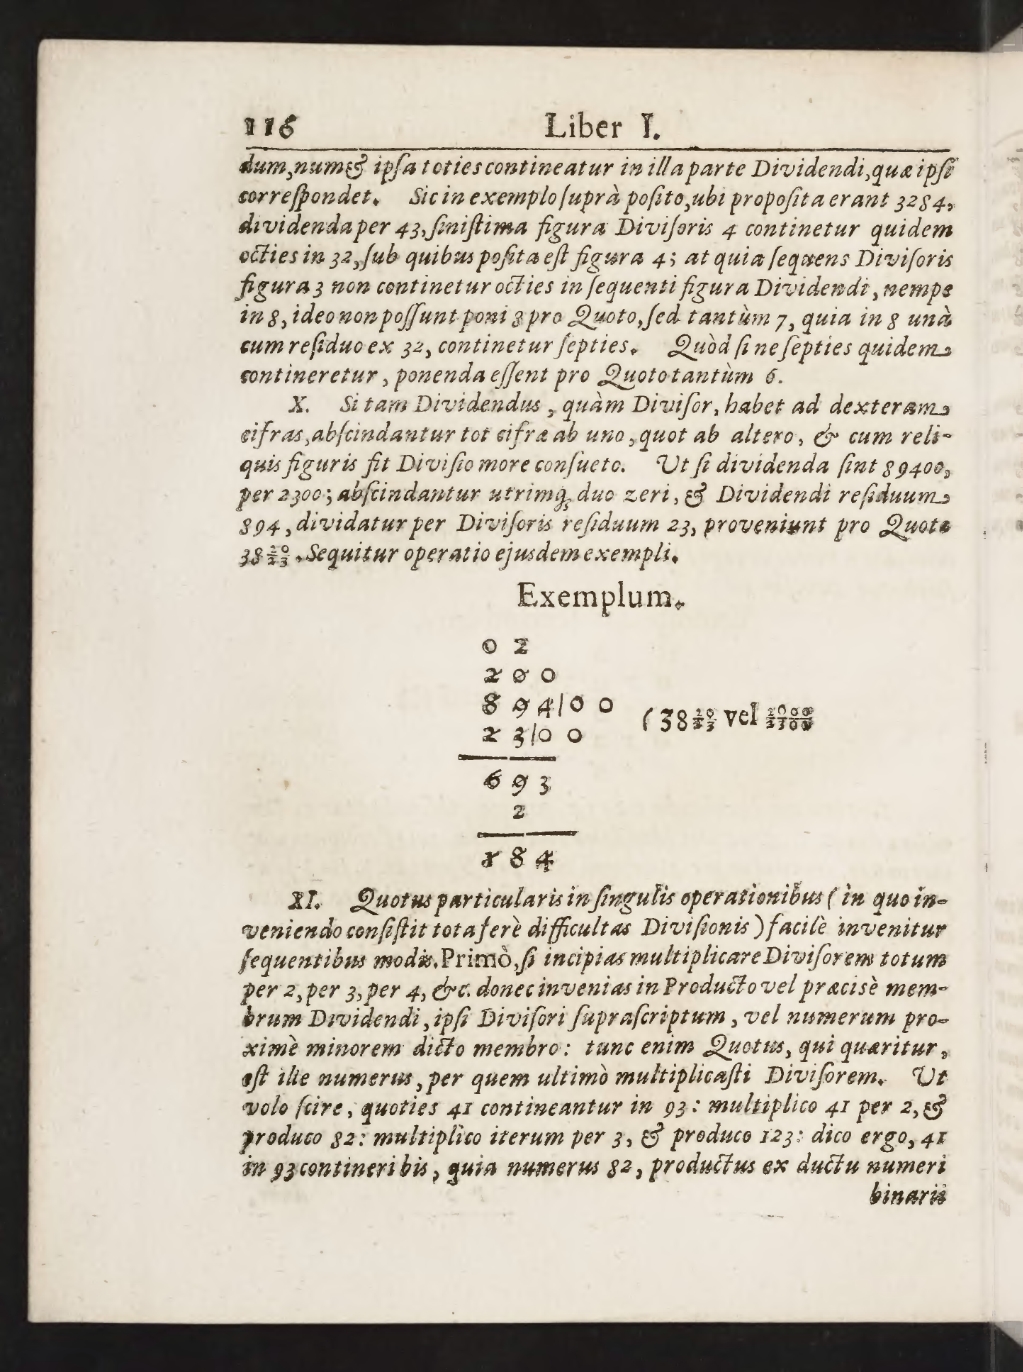 116 Liber I.
dum, num & ipſa toties contineatur in illa parte Dividendi, quæ ipſi
correſpondet. Sic in exemplo ſuprà poſito, ubi propoſita erant 3284,
dividenda per 43, ſiniſtima figura Diviſoris 4 continetur quidem
octies in 32, ſub quibus poſita eſt figura 4; at quia ſequens Diviſoris
figura 3 non continetur octies in ſequenti figura Dividendi, nempe
in 8, ideo non poſſunt poni 8 pro Quoto, ſed tantùm 7, quia in 8 unà
cum reſiduo ex 32, continetur ſepties. Quòd ſi ne ſepties quidem
contineretur, ponenda eſſent pro Quoto tantùm 6.
X. Si tam Dividendus, quàm Diviſor, habet ad dexteram
cifras, abſcindantur tot cifræ ab uno, quot ab altero, & cum reli-
quis figuris fit Diviſio more conſueto. Ut ſi dividenda ſint 89400,
per 2300; abſcindantur utrimq; duo zeri, & Dividendi reſiduum
894, dividatur per Diviſoris reſiduum 23, proveniunt pro Quoto
38 20/23. Sequitur operatio ejusdem exempli.
Exemplum.
0 2
2 0 0
8 9 4/0 0
(38 20/23 vel 2000/2300
2 3/0 0
6 9 3
2
1 8 4
XI. Quotus particularis in ſingulis operationibus (in quo in-
veniendo conſiſtit tota ferè difficultas Diviſionis) facilè invenitur
ſequentibus modis. Primò, ſi incipias multiplicare Diviſorem totum
per 2, per 3, per 4, &c. donec invenias in Producto vel præcisè mem-
brum Dividendi, ipſi Diviſori ſupraſcriptum, vel numerum pro-
ximè minorem dicto membro: tunc enim Quotus, qui quæritur,
eſt ille numerus, per quem ultimò multiplicaſti Diviſorem. Ut
volo ſcire, quoties 41 contineantur in 93: multiplico 41 per 2, &
produco 82: multiplico iterum per 3, & produco 123: dico ergo, 41
in 93 contineri bis, quia numerus 82, productus ex ductu numeri
binarii